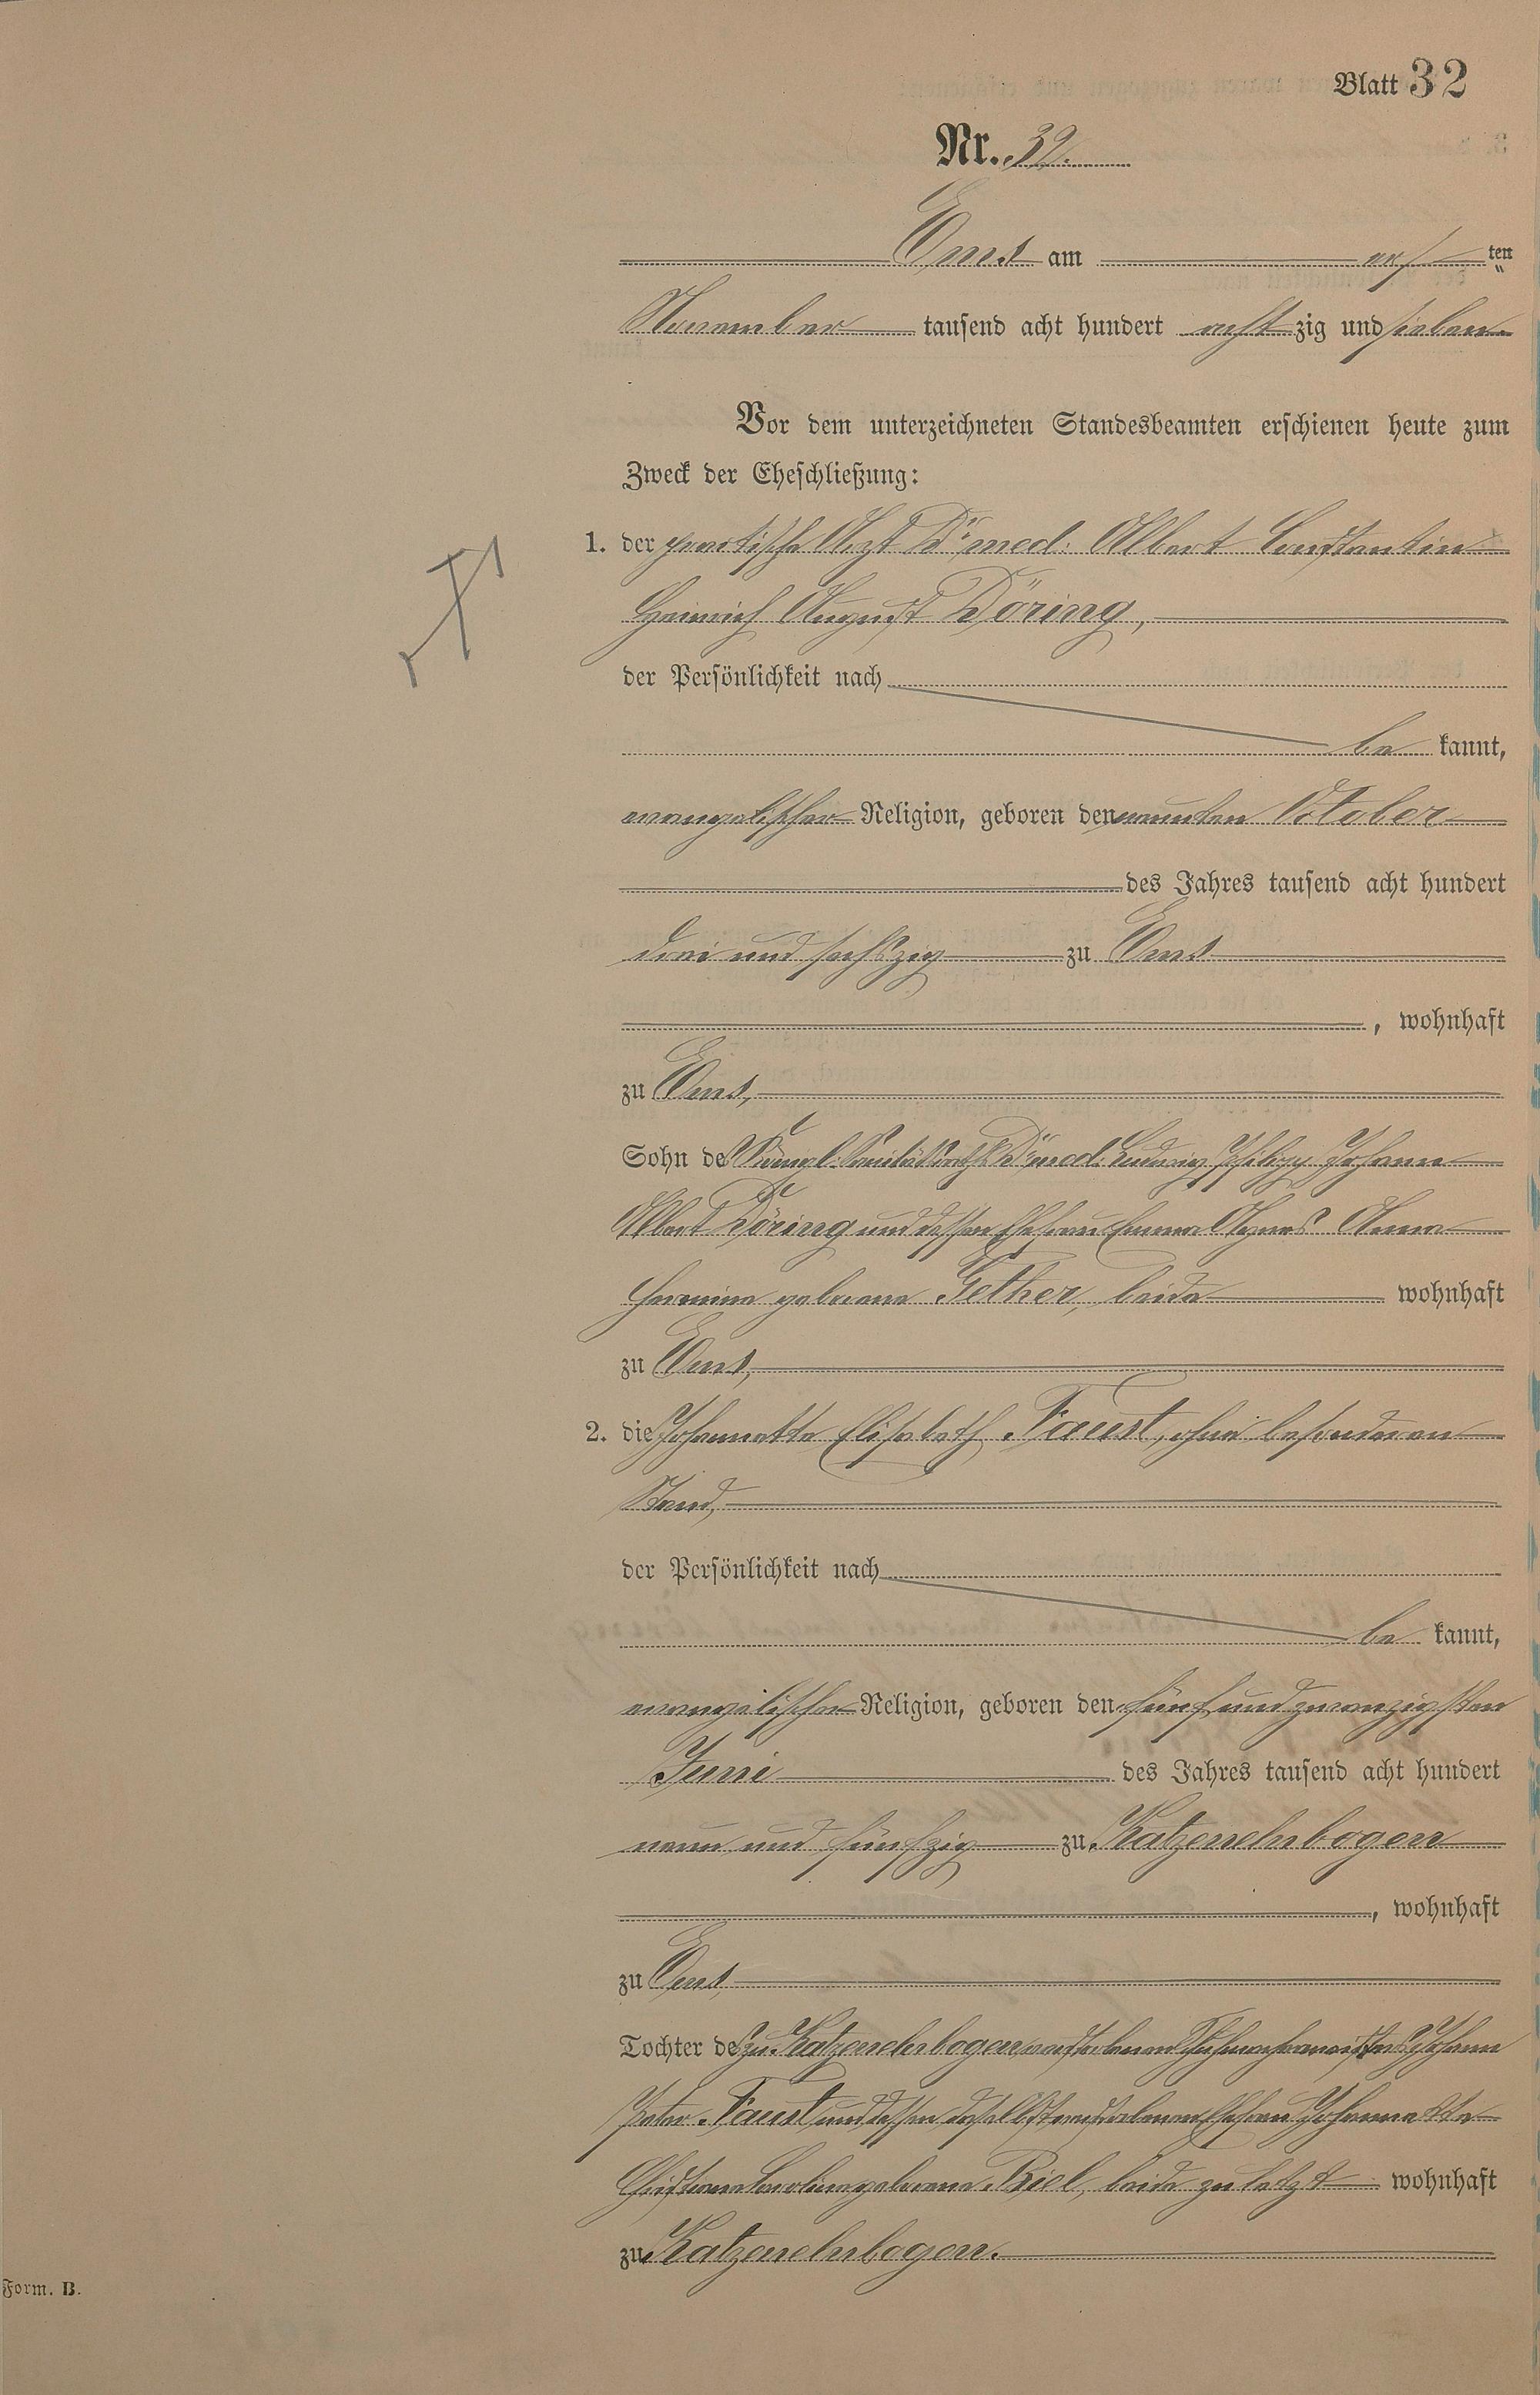 Blatt 32
Nr. 32.
Ems am ersten
November tausend acht hundert achtzig und sieben
Vor dem unterzeichneten Standesbeamten erschienen heute zum
Zweck der Eheschließung:
1. der practische Arzt Dr. med. Albert Constantin
Heinrich August Döring,
der Persönlichkeit nach
be kannt,
evangelischer Religion, geboren den neunten October
des Jahres tausend acht hundert
drei und sechszig zu Ems
, wohnhaft
zu Ems,
Sohn des Königl. Sanitätsraths Dr. med. Ludwig Philipp Johann
Albert Döring und dessen Ehefrau Emma Agnes Anna
Hermine geborene Gether, beide wohnhaft
zu Ems,
2. die Johannette Elisabeth Faust, ohne besonderen
Stand,
der Persönlichkeit nach
be kannt,
evangelischer Religion, geboren den fünf und zwanzigsten
Juni des Jahres tausend acht hundert
neun und fünfzig zu Katzenelnbogen
, wohnhaft
zu Ems
Tochter des zu Katzenelnbogen verstorbenen Johann
Peter Faust und dessen daselbst verstorbenen Ehefrau Johannette
Christiane Caroline geborene Biel, beide zuletzt wohnhaft
zu Katzenelnbogen.
Form. B.